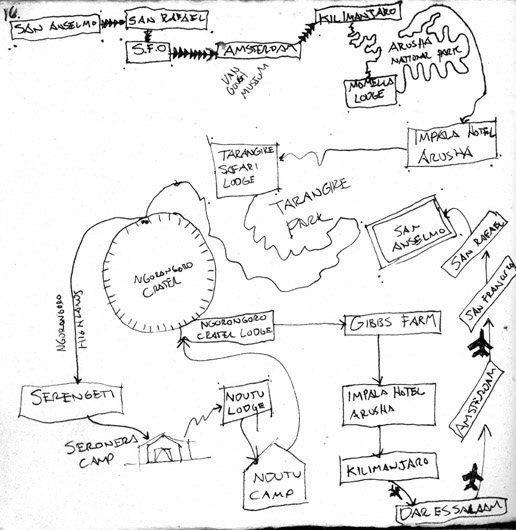 16.
SAN ANSELMO
SAN RAFAEL
S.F.O
AMSTERDAM
VAN
GOGH
MUSEUM
KILIMANJARO
ARUSHA
NATIONAL PARK
MOMELLA
LODGE
IMPALA HOTEL
ARUSHA
TARANGIRE
SAFARI
LODGE
TARANGIRE
PARK
NGORONGORO
CRATER
NGORONGORO
HIGHLANDS
SERENGETI
SERONERA
CAMP
NDUTU
LODGE
NDUTU
CAMP
NGORONGORO
CRATER LODGE
GIBBS FARM
IMPALA HOTEL
ARUSHA
KILIMANJARO
DAR ES SALAAM
AMSTERDAM
SAN FRANCISCO
SAN RAFAEL
SAN
ANSELMO